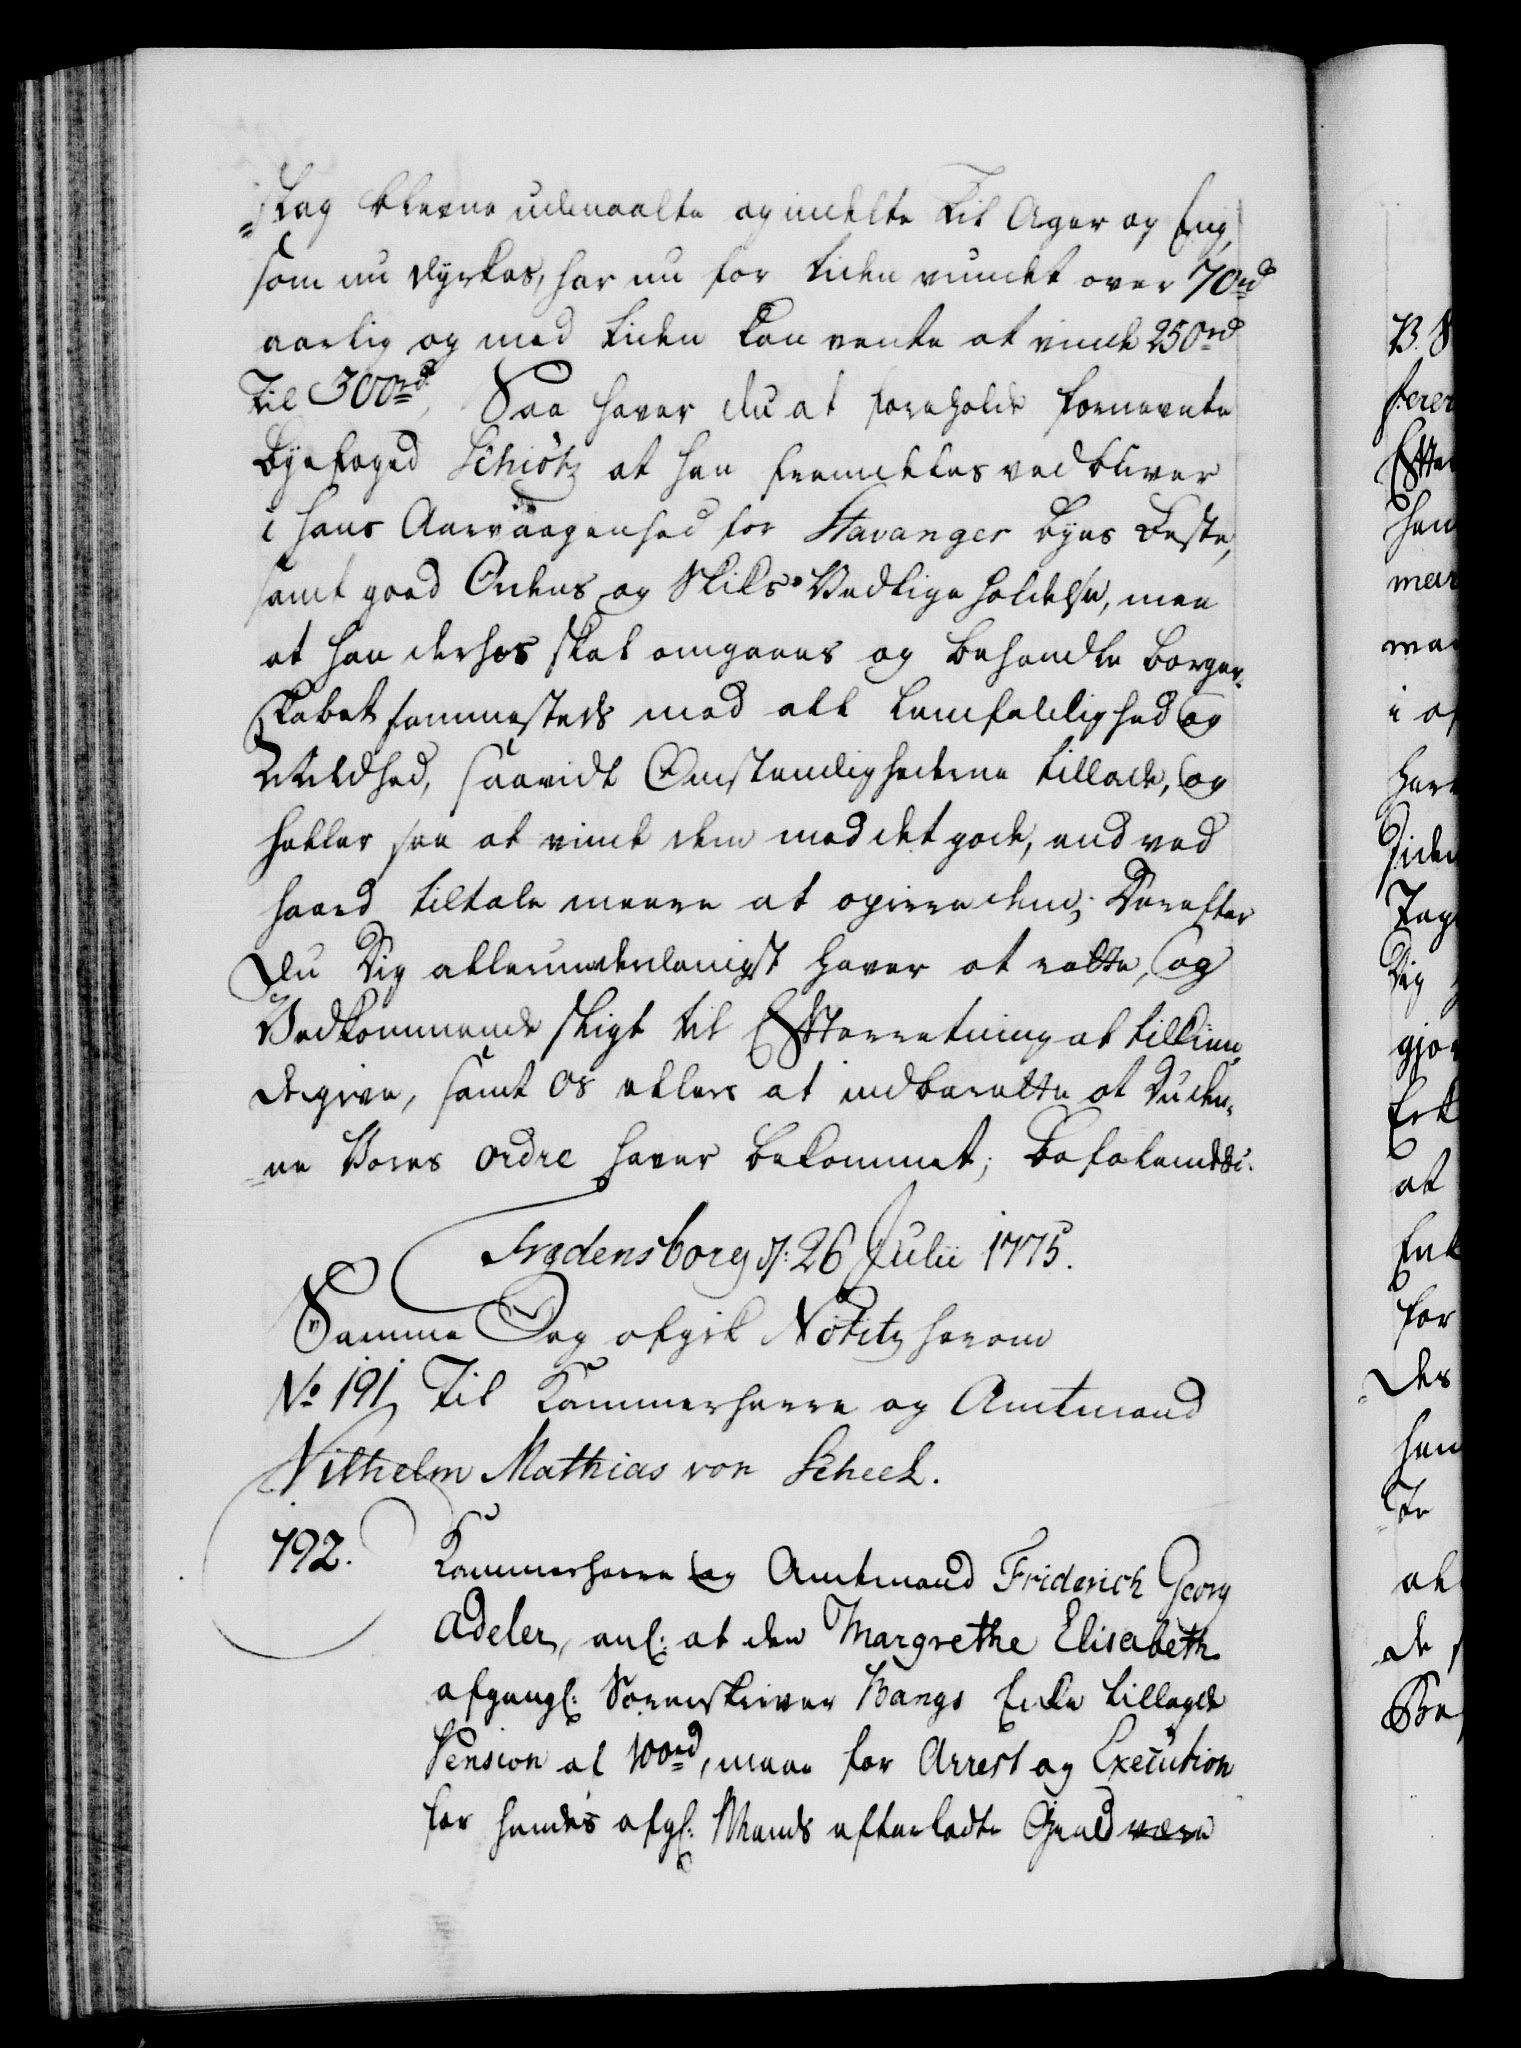 =stag blevne udmaalte og inddelte til Ager og Eng,
som nu dyrkes, har nu for tiden vundet over 70rd
aarlig og med tiden kan vente at vinde 250rd
til 300rd, Saa haver du at foreholde fornevnte
Byefoged Schiötz at han fremdeles vedbliver
i hans Aarvaagenhed for Stavanger Byes Beste,
samt good Ordens og Skiks Vedligeholdelse, men
at han derhos skal omgaaes og behandle Borger-
skabet sammesteds med all Lemfeldighed og
Mildhed, saavidt Omstændighederne tillade, og
heller søe at vinde dem med det gode, end ved
haard tiltale meere at opirre dem; Derefter
Du Dig allerunderdanigst haver at rette, og
Vedkommende sligt til Efterretning at tilkien-
degive, samt os ellers at indberette at Du den-
=ne Vores ordre haver bekommet; Befalendes
Fredensborg d: 26 Julii 1775.
Samme Dag afgik Notitz herom
No 191 Til Kammerherre og Amtmand
Vilhelm Mathias von Scheel.
192. Kammerherre og Amtmand Friderich Georg
Adeler, anl: at den Margrethe Elisabeth
afgangl: Sorenskriver Bangs Enke tillagde
Pension af 100rd, maae for Arrest og Execution
for hendes afgl: Mands efterladte Gield være